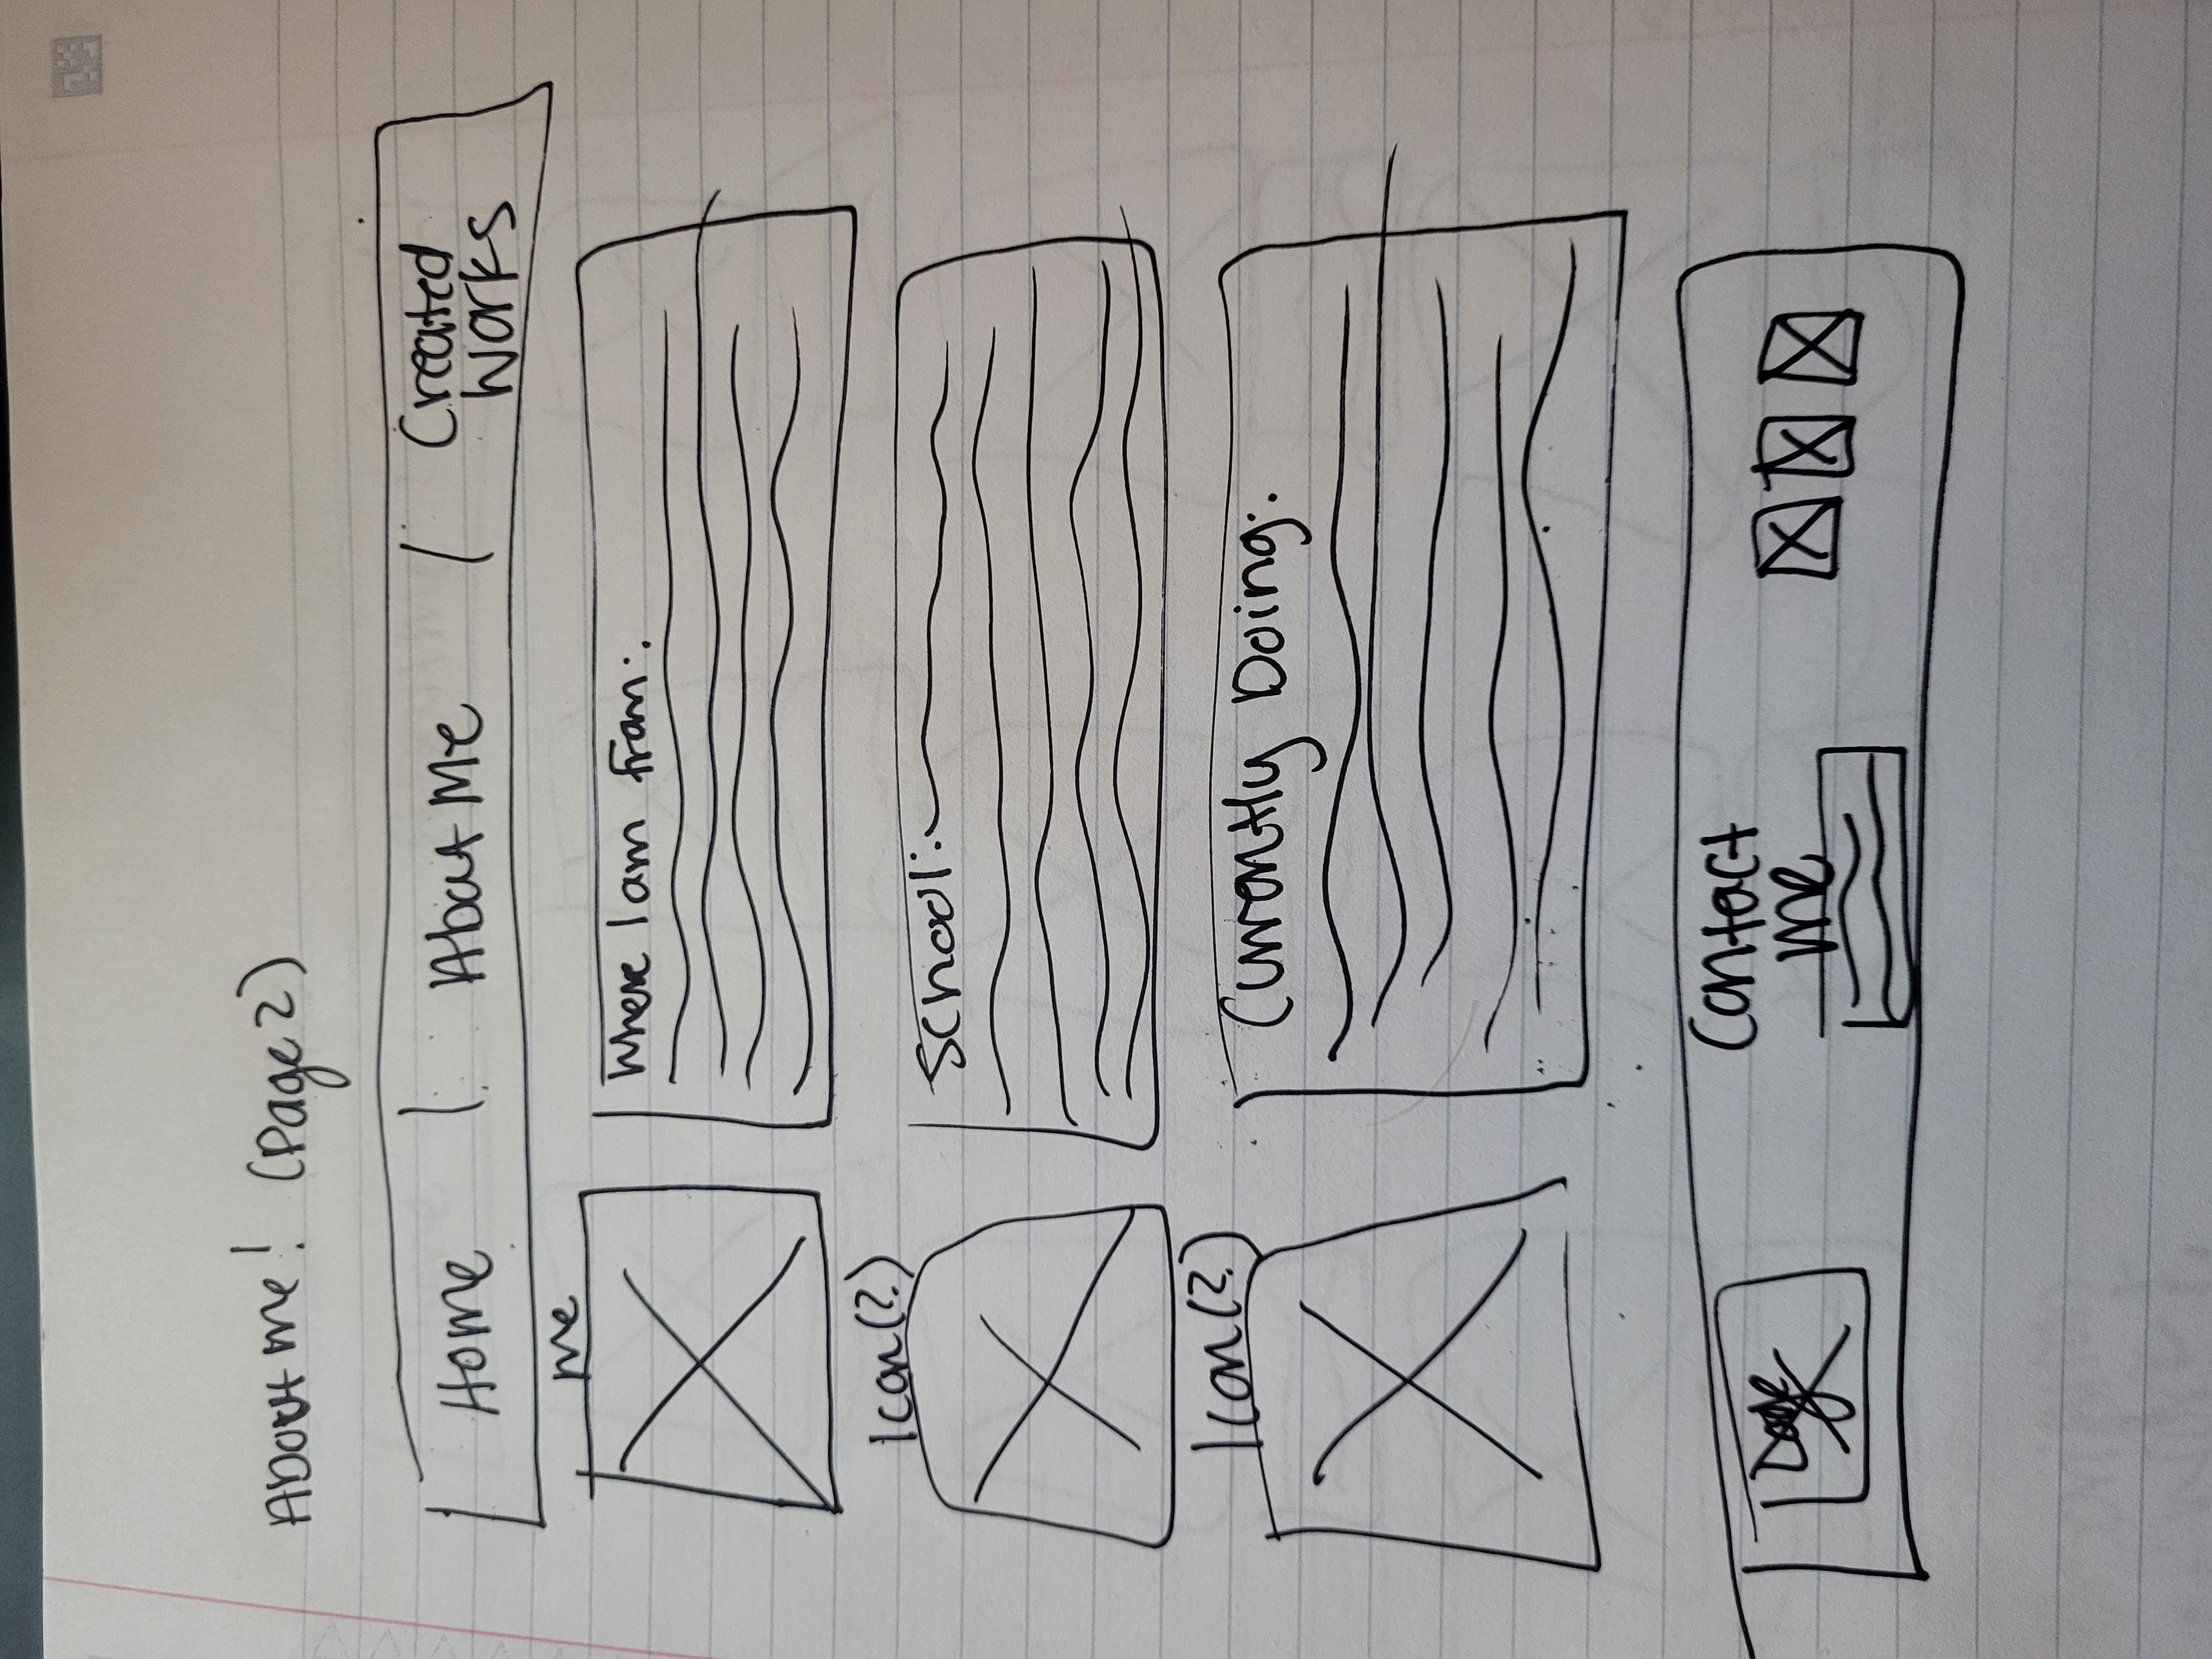 About me! (Page 2)
Home | About Me | Created
works
me
Where I am from:
Icon(?)
School:
Icon(?)
Currently Doing:
Contact
me
Logo